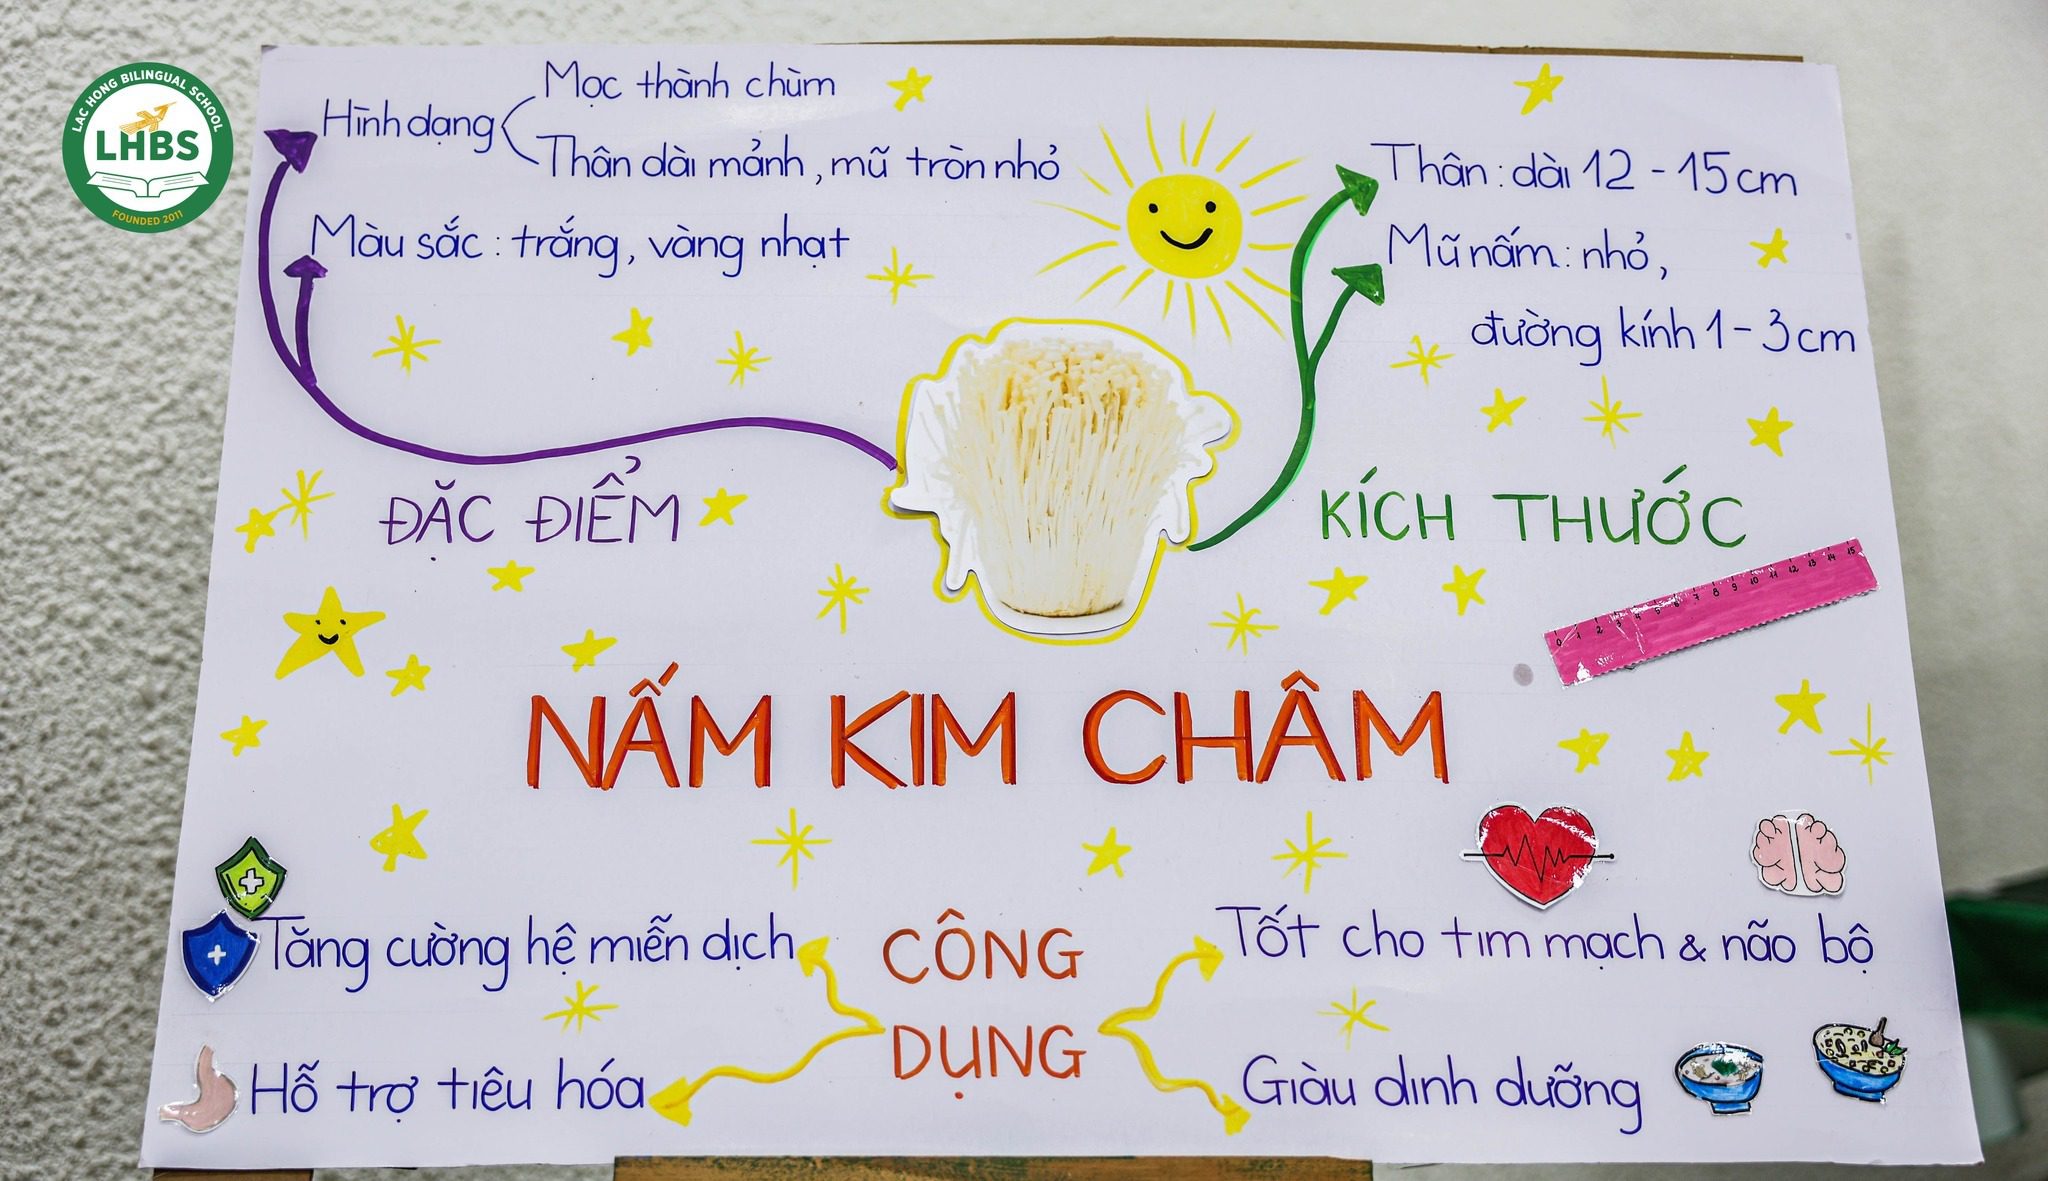 LAC HONG BILINGUAL SCHOOL
LHBS
FOUNDED 2011
Hình dạng
Mọc thành chùm
Thân dài mảnh, mũ tròn nhỏ
Màu sắc: trắng, vàng nhạt
ĐẶC ĐIỂM
Thân: dài 12 - 15 cm
Mũ nấm: nhỏ,
đường kính 1 - 3 cm
KÍCH THƯỚC
0 1 2 3 4 5 6 7 8 9 10 11 12 13 14 15
NẤM KIM CHÂM
CÔNG
DỤNG
Tăng cường hệ miễn dịch
Hỗ trợ tiêu hóa
Tốt cho tim mạch & não bộ
Giàu dinh dưỡng